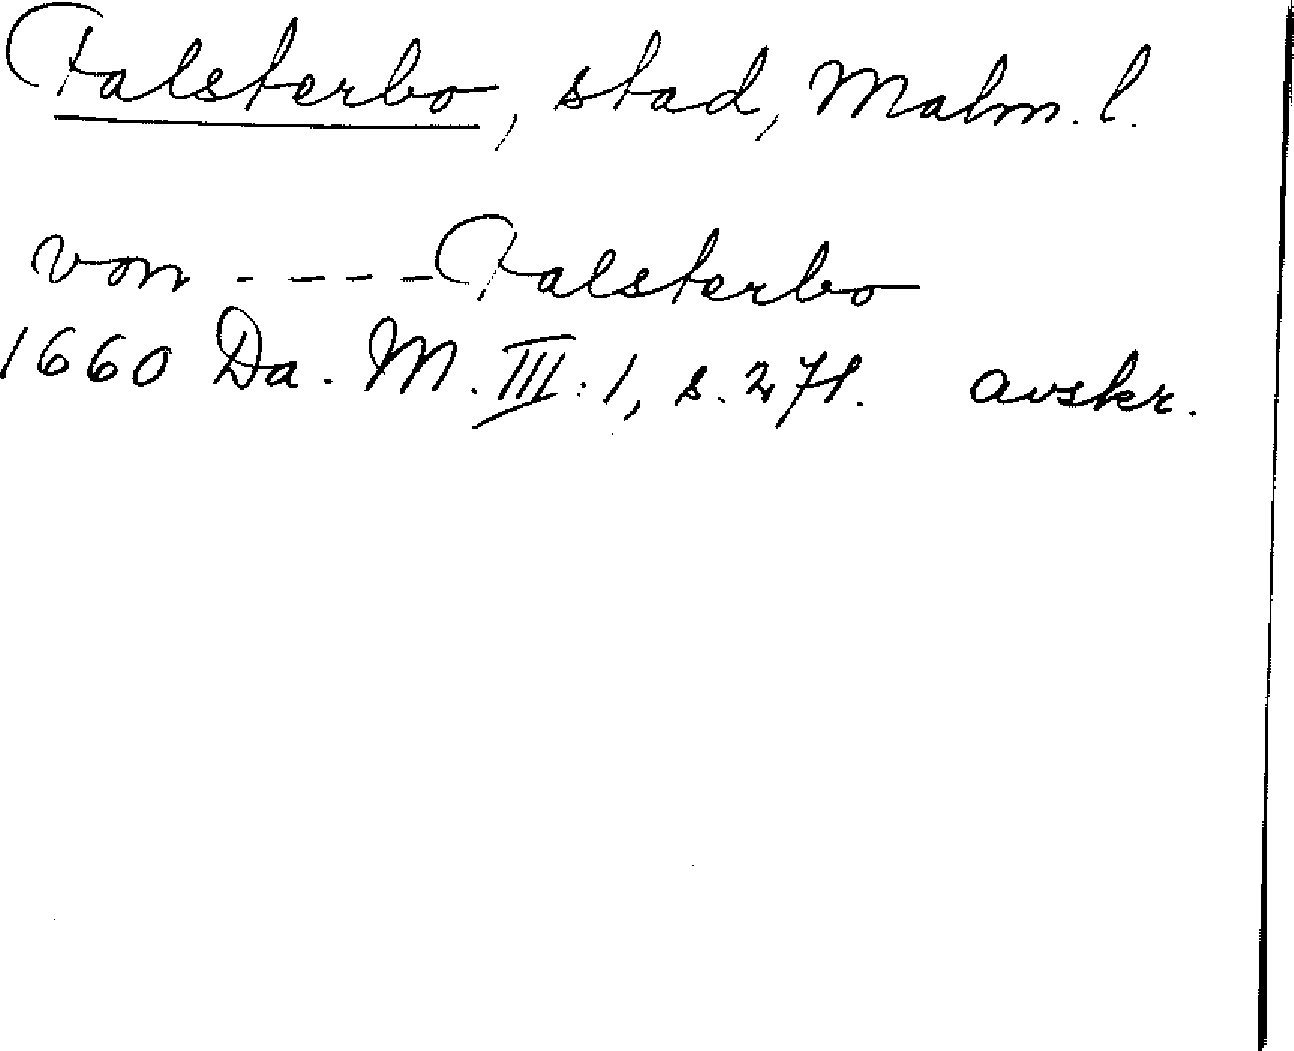 Falsterbo, stad, Malm. l.
von - - - - Falsterbo
1660 Da. M. III: 1, s. 271. avskr.